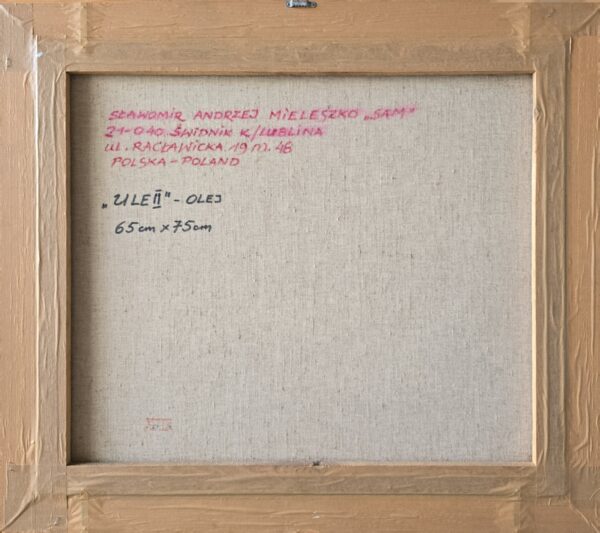 SŁAWOMIR ANDRZEJ MIELESZKO „SAM"
21-040 ŚWIDNIK K/LUBLINA
UL. RACŁAWICKA 19 M. 46
POLSKA - POLAND
„ULE II" - OLEJ
65cm x 75cm